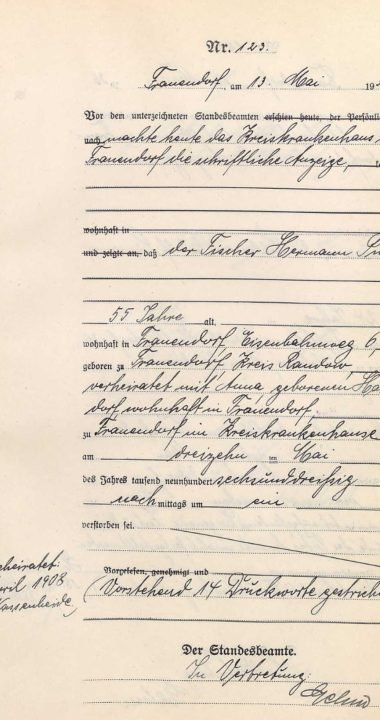 Nr. 123.
Frauendorf, am 13 Mai 19
Vor dem unterzeichneten Standesbeamten erschien heute, der Persönli
nach machte heute das Kreiskrankenhaus
Frauendorf die schriftliche Anzeige,
wohnhaft in
und zeigte an, daß der Fischer Hermann
55 Jahre alt,
wohnhaft in Frauendorf, Eisenbahnweg 6,
geboren zu Frauendorf Kreis Randow,
verheiratet mit Anna, geborenen Ha
dorf wohnhaft in Frauendorf,
zu Frauendorf im Kreiskrankenhause
am dreizehn ten Mai
des Jahres tausend neunhundert sechsunddreißig
nachmittags um ein
verstorben sei.
heiratet:
pril 1908
Wassenheide,
Vorgelesen, genehmigt und
(Vorstehend 14 Druckworte gestrich
Der Standesbeamte.
In Vertretung: